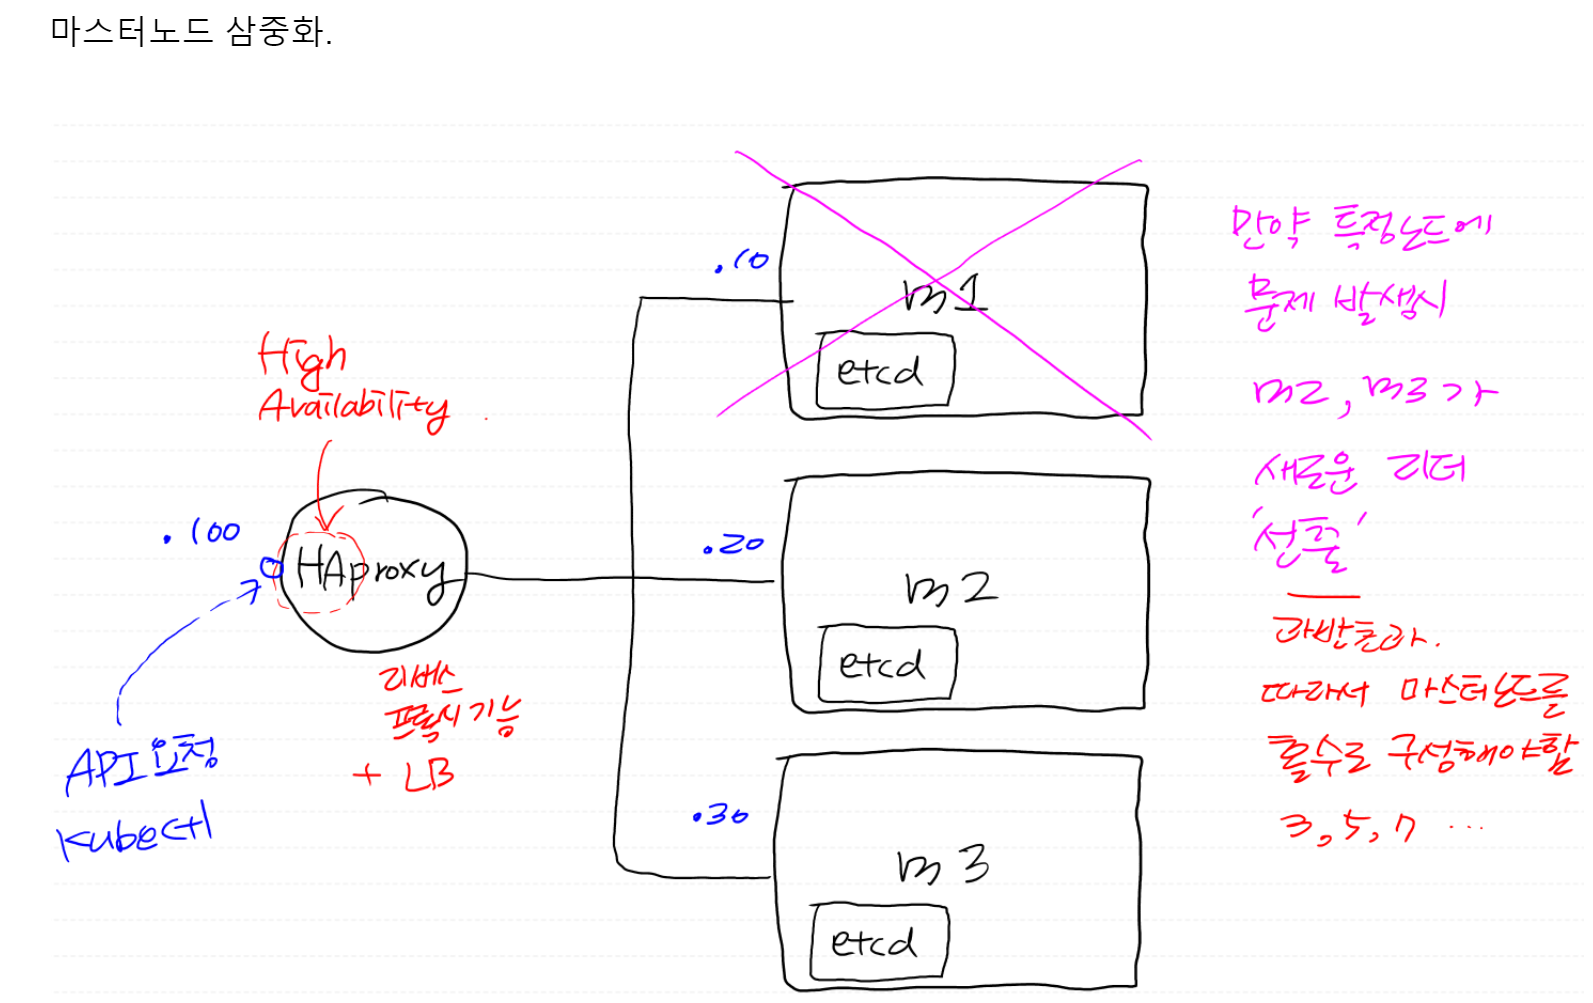 마스터노드 삼중화.
High
Availability.
.100
HAproxy
리버스
프록시기능
+ LB
API요청
kubectl
.10
m1
etcd
.20
m2
etcd
.30
m3
etcd
만약 특정노드에
문제 발생시
m2, m3가
새로운 리더
'선출'
과반초과.
따라서 마스터노드를
홀수로 구성해야함
3, 5, 7 ...